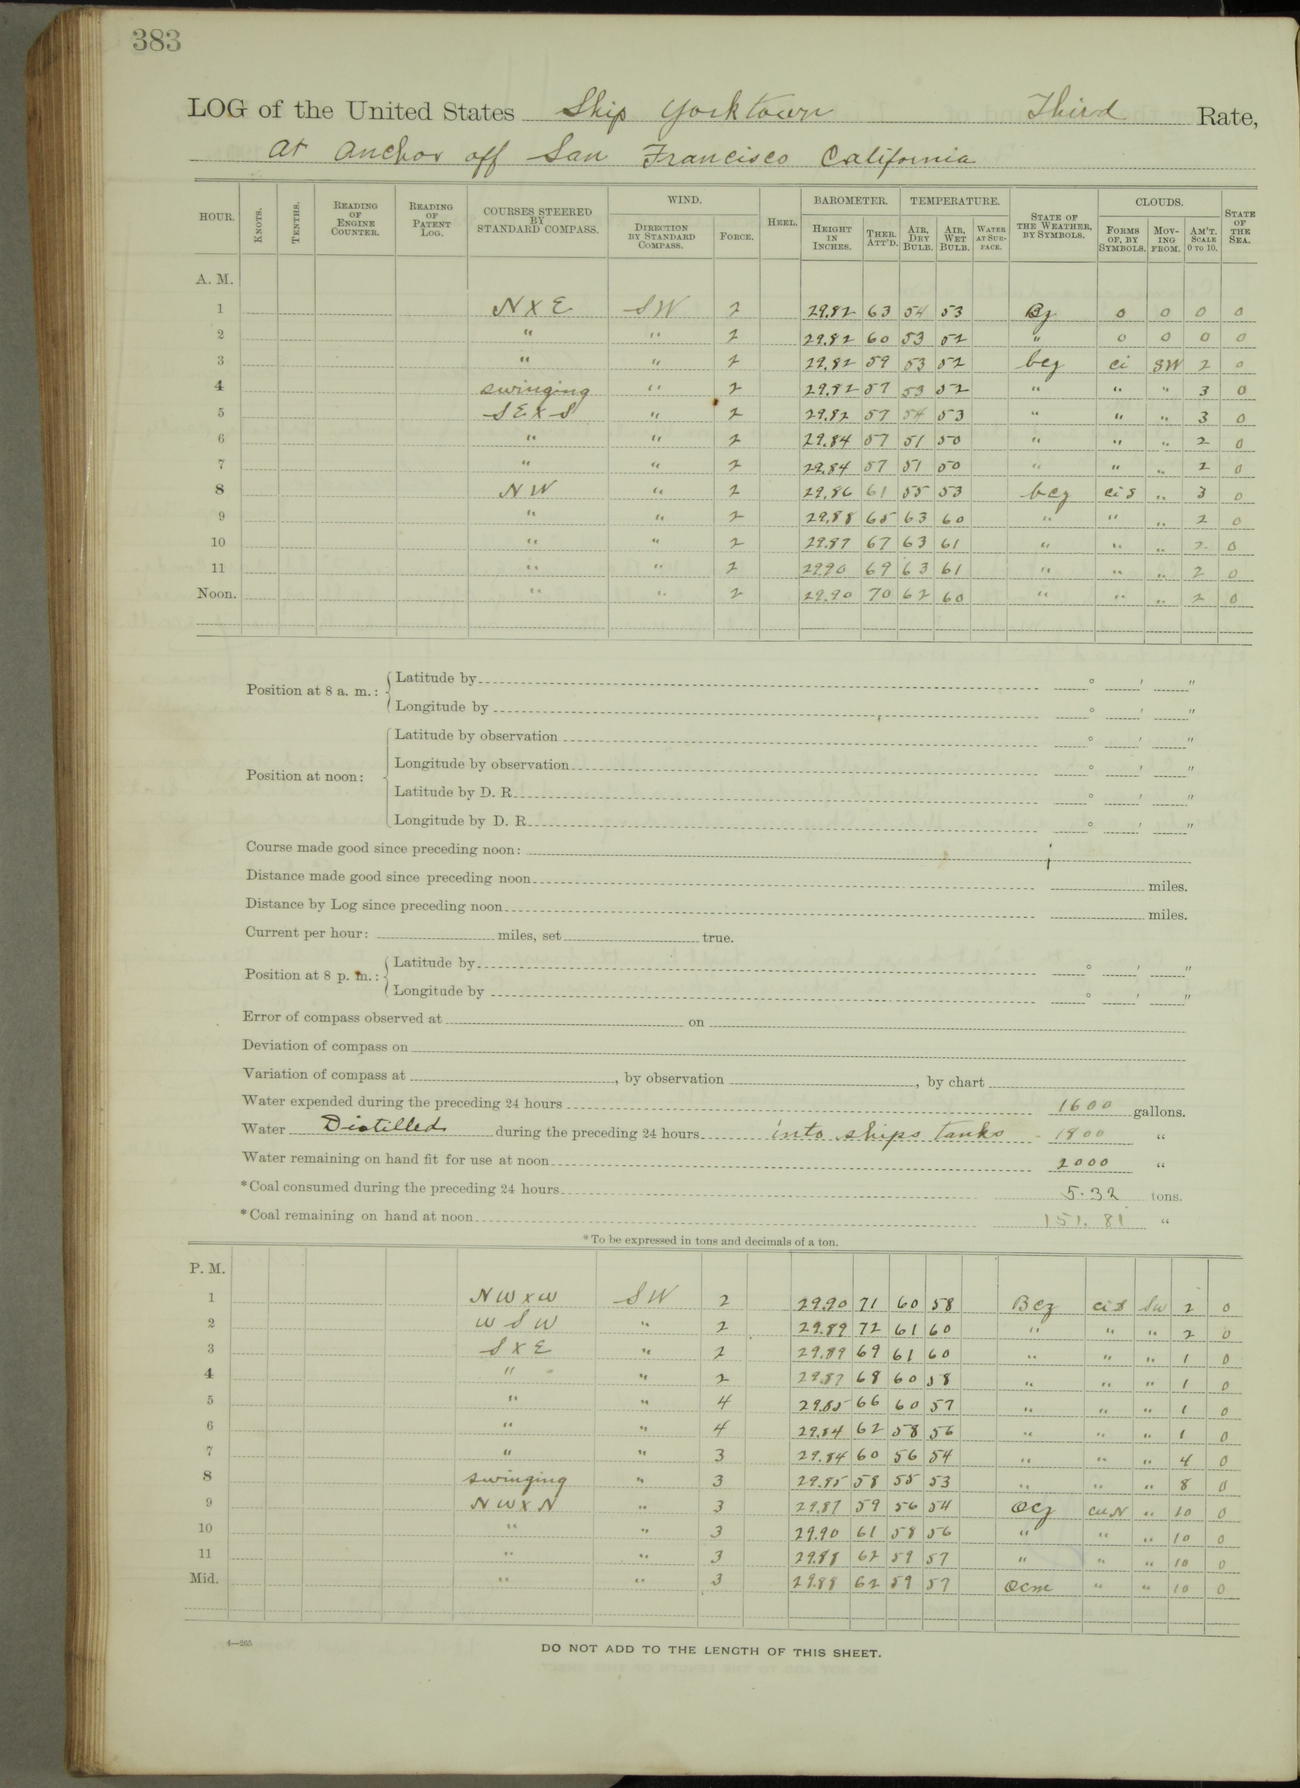 383
LOG of the United States Ship Yorktown Third Rate,
At anchor off San Francisco California
HOUR. KNOTS. TENTHS. READING OF ENGINE COUNTER. READING OF PATENT LOG. COURSES STEERED BY STANDARD COMPASS. WIND. DIRECTION BY STANDARD COMPASS. FORCE. HEEL. BAROMETER. HEIGHT IN INCHES. THER. ATT'D. TEMPERATURE. AIR, DRY BULB. AIR, WET BULB. WATER AT SURFACE. STATE OF THE WEATHER, BY SYMBOLS. CLOUDS. FORMS OF, BY SYMBOLS. MOVING FROM. AM'T. SCALE 0 TO 10. STATE OF THE SEA.
A. M.
1 N X E SW 2 29.82 63 54 53 Bz 0 0 0 0
2 " " 2 29.82 60 53 52 " 0 0 0 0
3 " " 2 29.82 59 53 52 bcz ci SW 2 0
4 swinging " 2 29.82 57 53 52 " " " 3 0
5 S E X S " 2 29.82 57 54 53 " " " 3 0
6 " " 2 29.84 57 51 50 " " " 2 0
7 " " 2 29.84 57 51 50 " " " 2 0
8 N W " 2 29.86 61 55 53 bcz ci s " 3 0
9 " " 2 29.88 65 63 60 " " " 2 0
10 " " 2 29.87 67 63 61 " " " 2 0
11 " " 2 29.90 69 63 61 " " " 2 0
Noon. " " 2 29.90 70 62 60 " " " 2 0
Position at 8 a. m.: Latitude by ° ' "
Longitude by ° ' "
Position at noon: Latitude by observation ° ' "
Longitude by observation ° ' "
Latitude by D. R. ° ' "
Longitude by D. R. ° ' "
Course made good since preceding noon:
Distance made good since preceding noon miles.
Distance by Log since preceding noon miles.
Current per hour: miles, set true.
Position at 8 p. m.: Latitude by ° ' "
Longitude by ° ' "
Error of compass observed at on
Deviation of compass on
Variation of compass at , by observation , by chart
Water expended during the preceding 24 hours 1600 gallons.
Water Distilled during the preceding 24 hours into ships tanks 1800 "
Water remaining on hand fit for use at noon 2000 "
*Coal consumed during the preceding 24 hours 5.32 tons.
*Coal remaining on hand at noon 151.81 "
*To be expressed in tons and decimals of a ton.
P. M.
1 N W X W SW 2 29.90 71 60 58 Bcz ci s SW 2 0
2 W S W " 2 29.89 72 61 60 " " " 2 0
3 S X E " 2 29.89 69 61 60 " " " 1 0
4 " " 2 29.87 68 60 58 " " " 1 0
5 " " 4 29.85 66 60 57 " " " 1 0
6 " " 4 29.84 62 58 56 " " " 1 0
7 " " 3 29.84 60 56 54 " " " 4 0
8 swinging " 3 29.85 58 55 53 " " " 8 0
9 N W X N " 3 29.87 59 56 54 Ocz cu N " 10 0
10 " " 3 29.90 61 58 56 " " " 10 0
11 " " 3 29.88 62 59 57 " " " 10 0
Mid. " " 3 29.88 62 59 57 Ocm " " 10 0
4—265
DO NOT ADD TO THE LENGTH OF THIS SHEET.